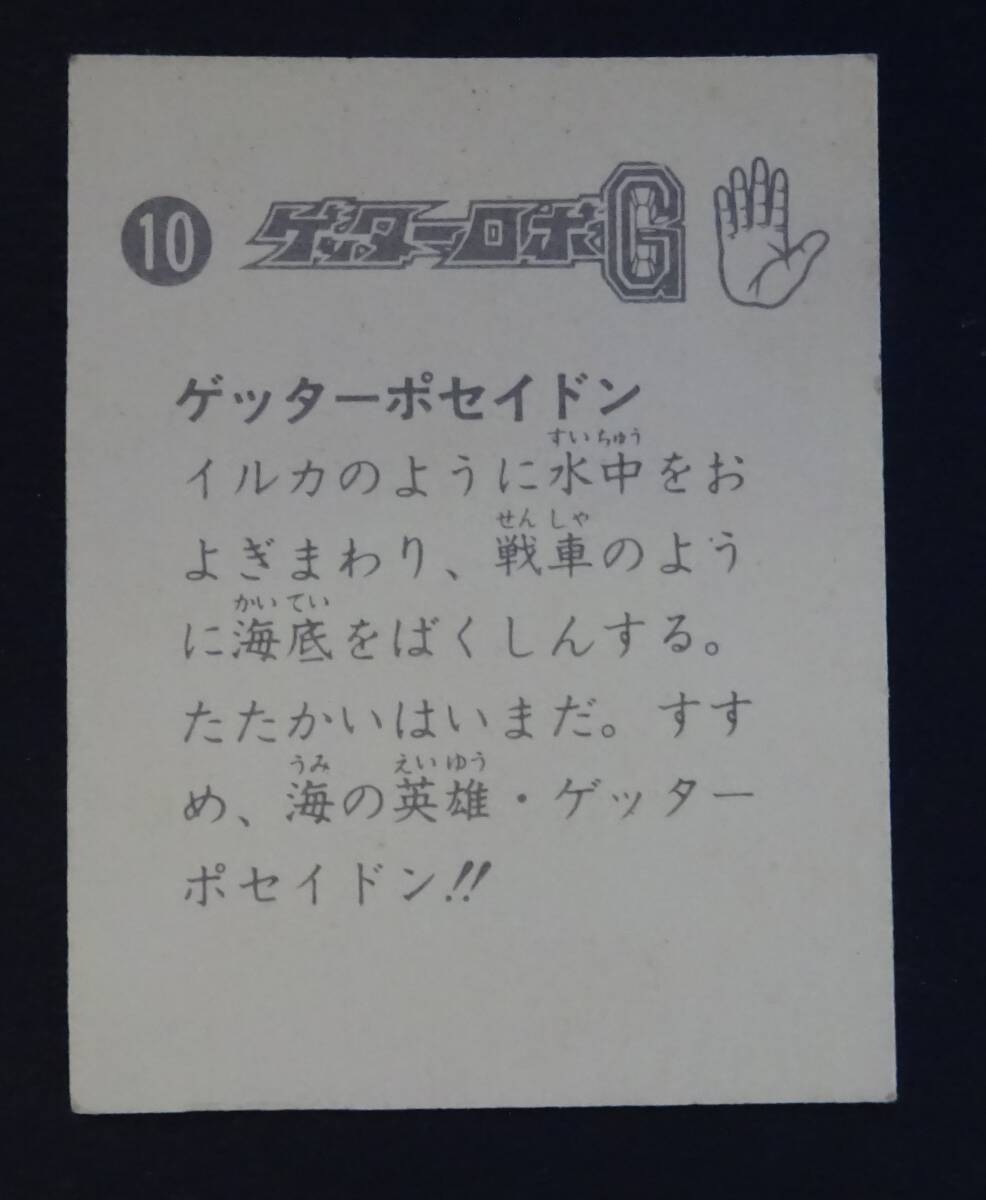 10 ゲッターロボG
ゲッターポセイドン
すいちゅう
イルカのように水中をお
せんしゃ
よぎまわり、戦車のよう
かいてい
に海底をばくしんする。
たたかいはいまだ。すす
うみ えいゆう
め、海の英雄・ゲッター
ポセイドン!!